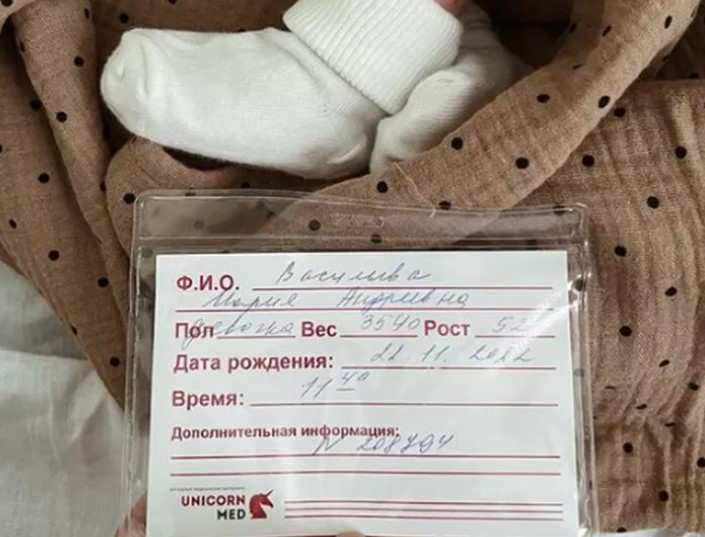 Ф.И.О. Василива
Мария Андривна
Пол девочка Вес 3540 Рост 52
Дата рождения: 21.11.2022
Время: 11 40
Дополнительная информация:
N 208794
UNICORN
MED